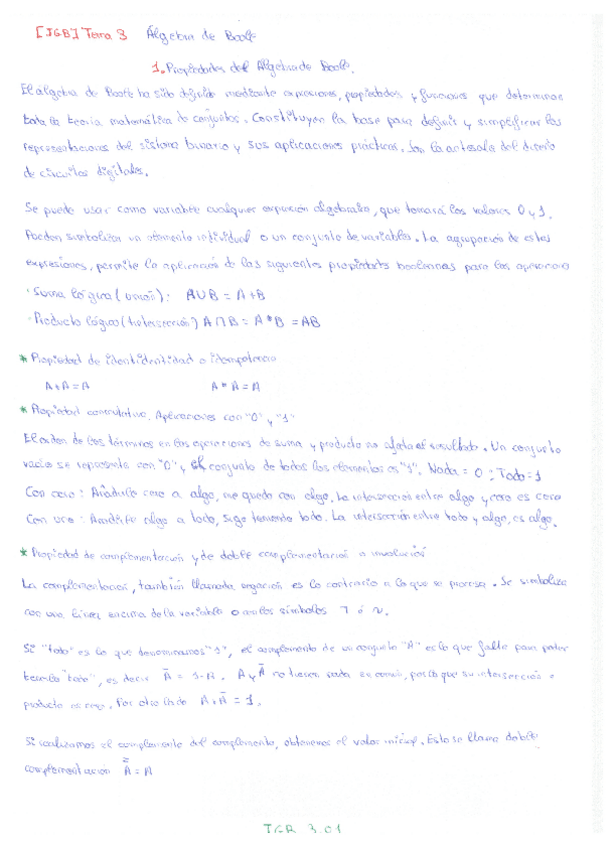 [JGB] Tema 3 Álgebra de Boole
1. Propiedades del Álgebra de Boole.
El álgebra de Boole ha sido definido mediante expresiones, propiedades y funciones que determinan
toda la teoría matemática de conjuntos. Constituyen la base para definir y simplificar las
representaciones del sistema binario y sus aplicaciones prácticas. Son la antesala del diseño
de circuitos digitales.
Se puede usar como variable cualquier expresión algebraica, que tomará los valores 0 y 1.
Pueden simbolizar un elemento individual o un conjunto de variables. La agrupación de estas
expresiones, permite la aplicación de las siguientes propiedades booleanas para las operaciones
· Suma lógica (unión): A∪B = A+B
· Producto lógico (intersección) A∩B = A*B = AB
* Propiedad de identidentidad o idempotencia
A+A=A A*A=A
* Propiedad conmutativa. Aplicaciones con "0" y "1"
El orden de los términos en las operaciones de suma y producto no afecta el resultado. Un conjunto
vacío se representa con "0" y el conjunto de todos los elementos es "1". Nada = 0 ; Todo = 1
Con cero: Añadirle cero a algo, me quedo con algo. La intersección entre algo y cero es cero
Con uno: Añadirle algo a todo, sigo teniendo todo. La intersección entre todo y algo, es algo.
* Propiedad de complementación y de doble complementación o involución
La complementación, también llamada negación es lo contrario a lo que se procesa. Se simboliza
con una línea encima de la variable o con los símbolos ┐ ó ~.
Si "todo" es lo que denominamos "1", el complemento de un conjunto "A" es lo que falta para poder
tenerlo "todo", es decir Ā = 1-A. A y Ā no tienen nada en común, por lo que su intersección o
producto es cero. Por otro lado A+Ā = 1.
Si realizamos el complemento del complemento, obtenemos el valor inicial. Esto se llama doble
complementación A̿ = A